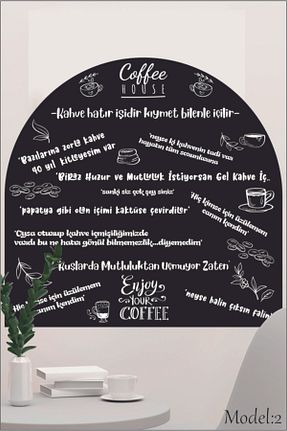 Coffee
HOUSE
-Kahve hatır işidir kıymet bilenle içilir-
"Bazılarına zorla kahve
40 yıl kitleyesim var
"neyse ki kahvenin tadı var
hayatın tüm
"Biraz Huzur ve Mutluluk İstiyorsan Gel Kahve İç..
"sanki siz çok şey siniz"
"papatya gibi olan içimi kaktüse çevirdiler"
"Hiç kimse için üzülemem
canım kendim"
"Oysa oturup kahve içmişliğimizde
vardı bu ne hatrı gönül bilmemezlik...diyemedim"
"Hiç kimse için üzülemem
canım kendim"
"Kuslarda Mutluluktan Uçmuyor Zaten"
Enjoy
YOUR
COFFEE
"neyse halin çıksın falin"
Model:2